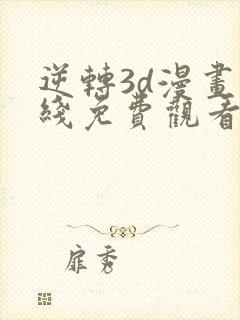 逆轉3d漫畫
綫免費觀看
扉秀